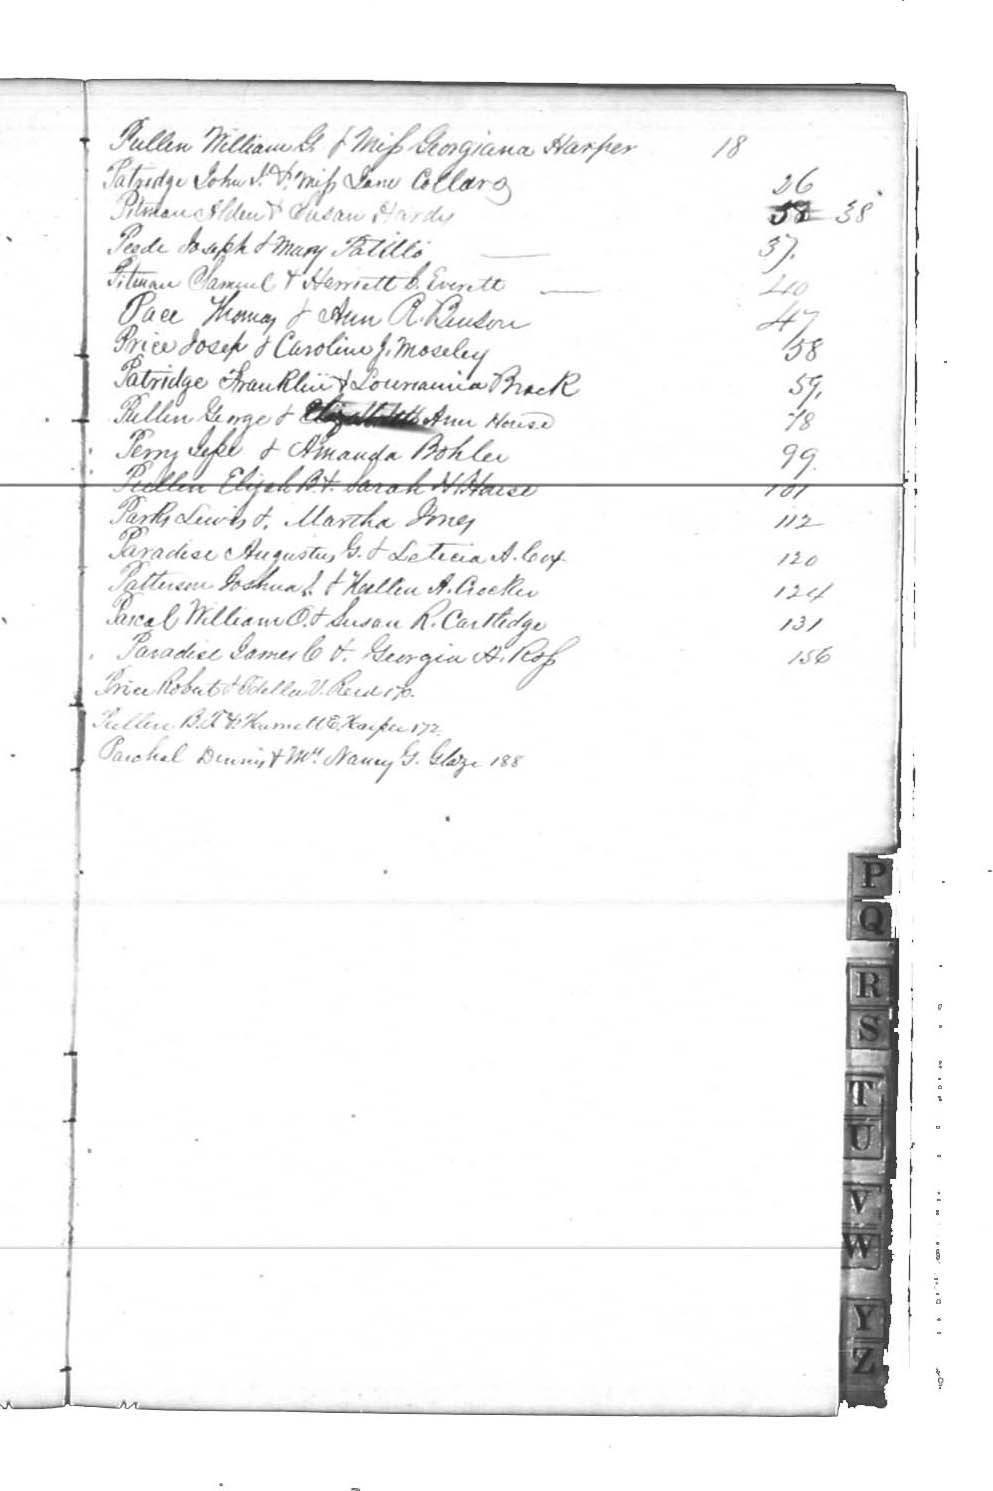 Pullen William G. & Miss Georgiana Harper 18
Patridge John & Miss Jane Collars 26
Pitman Alden & Susan Hardy 38
Peede Joseph & Mary Patillo 37.
Pitman Samuel & Harriett C. Everett 40
Pace Thomas & Ann R. Benson 47
Price Josep & Caroline J. Moseley 58
Patridge Franklin & Brack 59.
Pullen George & Ann House 78
Perry & Amanda Bohler 99.
Pullen Elijah B. & Sarah H. House 101
Parks Lewis & Martha Jones 112
Paradise Augustus G. & Leticia A. Cox 120
Patterson Joshua & A. Crocker 124
Pascal William O. & Susan R. Cartledge 131
Paradise James C & Georgia A. Ross 156
Price Robert & V. Reid 170.
Pullen B. T. & Harriett E. Harper 172.
Paschal Dennis & Mrs Nancy G. Glaze 188
P
Q
R
S
T
U
V
W
Y
Z